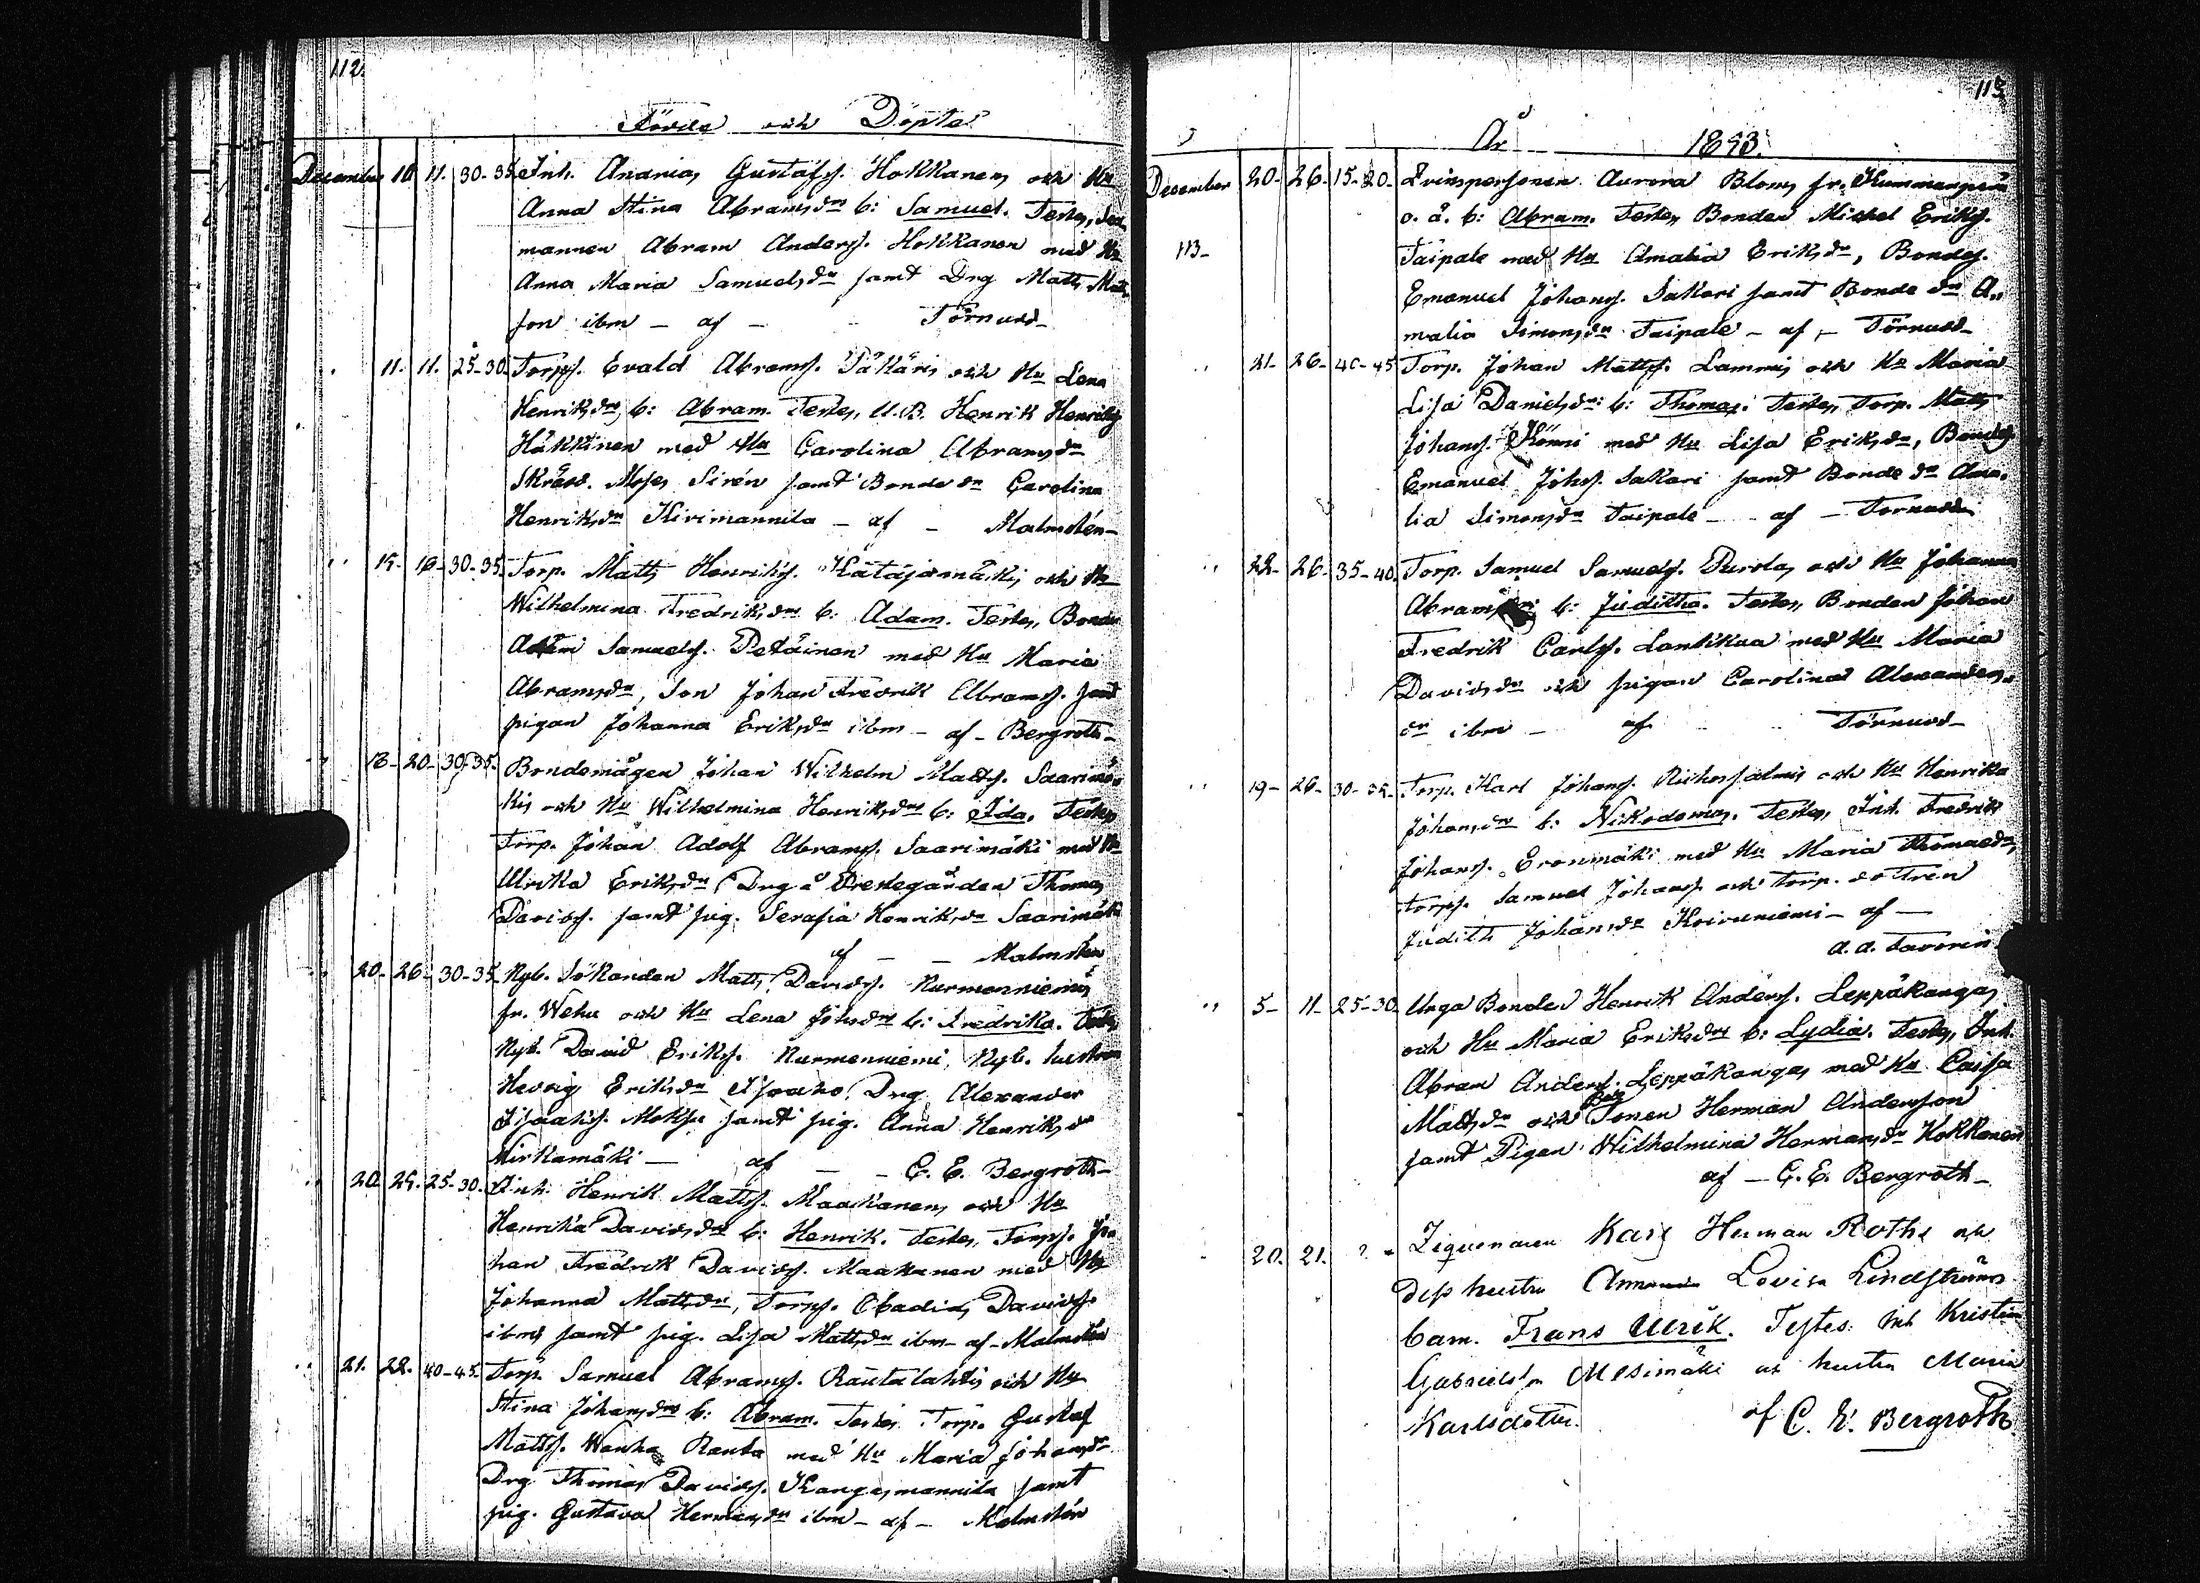 112.
Födde och Döpte
December 10 11. 30-35 Inh. Ananias Gustafss. Hokkanens och Hu
Anna Stina Abramsdrs b: Samuel. Testes, Sex
mannen Abram Anderss. Hokkanen med Hu
Anna Maria Samuelsdr samt Drg Matts Matts
son ibm - af - Törnudd-
11. 11. 25-30 Torps. Evald Abramss. och Hu Lena
Henriksdrs b: Abram. Testes, U.B. Henrik Henrikss
Häkkinen med Hu Carolina Abramsdr
Skrädd. Moses Sirén samt Bonde dr Carolina
Henriksdr Kivimannila - af - Malmstén-
30-35. Torp. Matts Henrikss. Katajamäkis och Hu
Wilhelmina Fredriksdrs b: Adam. Testes, Bonden
Adam Samuelss. Petäinen med Hu Maria
Abramsdr, Son Johan Fredrik Abramss. samt
pigan Johanna Eriksdr ibm - af - Bergroth-
18- 20- 30-35. Bondemågen Johan Wilhelm Mattss. Saarimä-
kis och Hu Wilhelmina Henriksdrs b: Ida. Testes
Torp. Johan Adolf Abramss. Saarimäki med Hu
Ulrika Eriksdr, Drg å Prestegården Thomas
Davidss. samt pig. Serafia Henriksdr Saarimäki
af - - Malmstén
20- 26- 30-35 Nyb. Sökanden Matts Davidss. Nurmenniemis
fr. Wehu och Hu Lena Johsdrs b: Fredrika. Testes
Nyb. David Erikss. Nurmenniemi, Nyb. hustrun
Hedvig Eriksdr Drg Alexander
Isaakss. Moksu samt pig. Anna Henriksdr
Mirkamäki - af - - C. E. Bergroth-
20. 25-30. Inh. Henrik Mattss. Maakanens och Hu
Henrika Davidsdrs b: Henrik. Testes, Torps. Jo
han Fredrik Davidss. Maakanen med Hu
Johanna Mattsdr, Torps. Obadias Davidss.
ibm, samt pig. Lisa Mattsdr ibm - af - Malmstén
21. 22. 40-45. Torp. Samuel Abramss. Rautalahtis och Hu
Stina Johansdrs b: Abram. Testes Torp. Gustaf
Mattss. Wanha Ranta med Hu Maria Johansdr
Drg Thomas Davidss. Kangasmannila samt
pig. Gustava Hermansdr ibm - af - Malmstén
113
År 1893.
December 20- 26- 15-20. Qvinspersonen Aurora Bloms fr.
o. ä. b: Abram. Testes, Bonden Michel Erikss.
113- Taipale med Hu Amalia Eriksdr, Bondes.
Emanuel Johanss. Sakari samt Bonde dr A-
malia Simonsdr Taipale - af - Törnudd-
21- 26- 40-45 Torp. Johan Mattss. Lammis och Hu Maria
Lisa Danielsdrs b: Thomas. Testes, Torp. Matts
Johanss. Könni med Hu Lisa Eriksdr, Bondes
Emanuel Johss. Sakari samt Bonde dr Ama-
lia Simonsdr Taipale - af - Törnudd
22- 26- 35-40. Torp. Samuel Samuelss. Purolas och Hu Johanna
Abramsdrs b: Juditha. Testes, Bonden Johan
Fredrik Carlss. Lantikua med Hu Maria
Davidsdr och pigan Carolina Alexanders-
dr ibm - af Törnudd-
19- 26- 30-35- Torp. Karl Johanss. och Hu Henrika
Johansdrs b: Nikodemas. Testes, Inh. Fredrik
Johanss. Eronmäki med Hu Maria Thomasdr,
Torps. Samuel Johanss. och Torp. dottren
Judith Johansdr Koivuniemi - af -
A. A. Favorin
5- 11- 25-30 Unga Bonden Henrik Anderss. Leppäkangas
och Hu Maria Eriksdrs b: Lydia. Testes, Inh.
Abram Anderss. Leppäkangas med Hu Caisa
Mattsdr och Bde Sonen Herman Andersson
samt Pigan Wilhelmina Hermansdr Hokkanen
af - C. E. Bergroth-
20. 21. ? Ziguenaren Karl Herman Roths och
dess hustru Anna Lovisa Lindströms
barn. Frans Ulrik. Testes: Inh Kristian
Gabrielsson Mesimäki och hustru Maria
Karlsdotter. af C. E. Bergroth